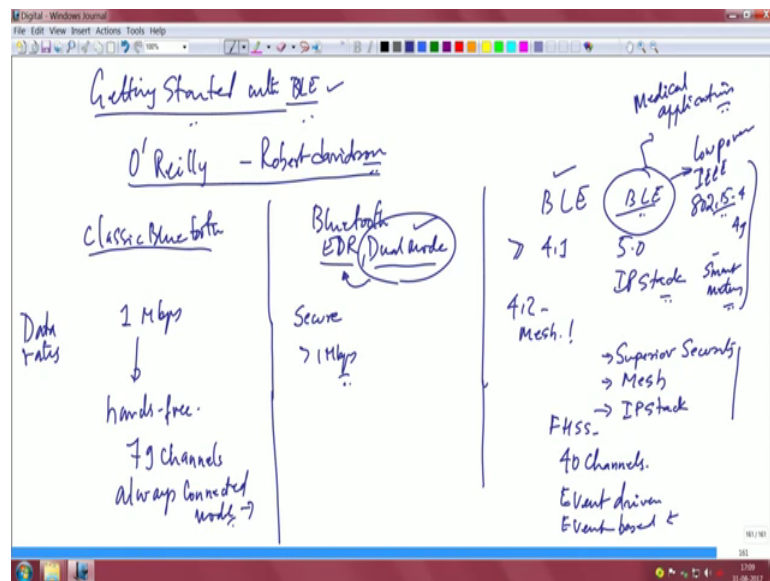 Digital - Windows Journal
File Edit View Insert Actions Tools Help
100%
Getting Started with BLE
O'Reilly - Robert davidson
Classic Bluetooth
Data rates
1 Mbps
hands-free.
79 channels
always connected
mode
Bluetooth
EDR, Dual mode
Secure
> 1 Mbps
Medical
applications
BLE
BLE
Low power
IEEE
802.15.4
4g
> 4.1
5.0
IP Stack
Smart
meters
4.2 -
Mesh.!
→ Superior Security
→ Mesh
→ IP Stack
FHSS -
40 Channels.
Event driven
Event-based
161/161
161
17:09
31-08-2017